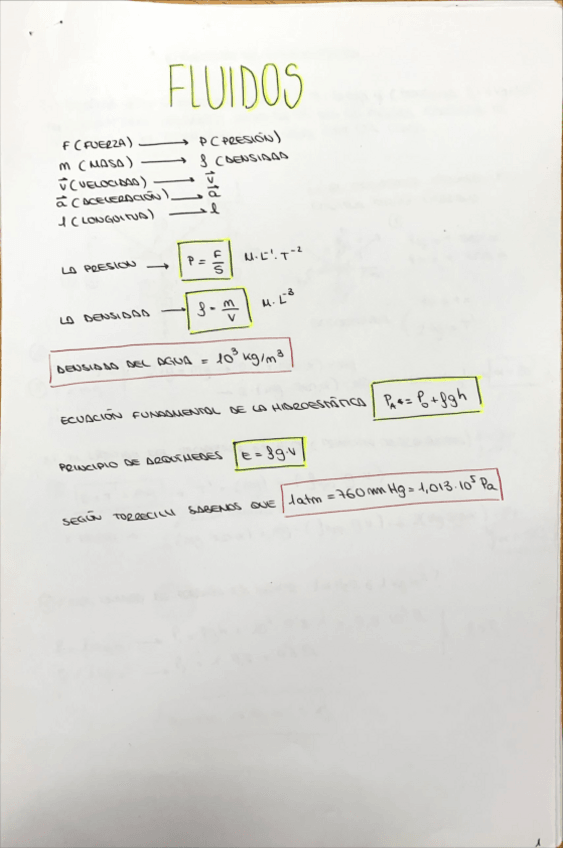 FLUIDOS
F (FUERZA) → P (PRESIÓN)
m (MASA) → ρ (DENSIDAD
v⃗ (VELOCIDAD) → v⃗
a⃗ (ACELERACIÓN) → a⃗
l (LONGUITUD) → l
LA PRESION → P = F/S M·L⁻¹·T⁻²
LA DENSIDAD → ρ = m/V M·L⁻³
DENSIDAD DEL AGUA = 10³ kg/m³
ECUACIÓN FUNDAMENTAL DE LA HIDROESTÁTICA P_A = P_0 + ρgh
PRINCIPIO DE ARQUÍMEDES e = ρg·V
SEGÚN TORRECILLI SABEMOS QUE 1 atm = 760 mm Hg = 1,013·10⁵ Pa
1